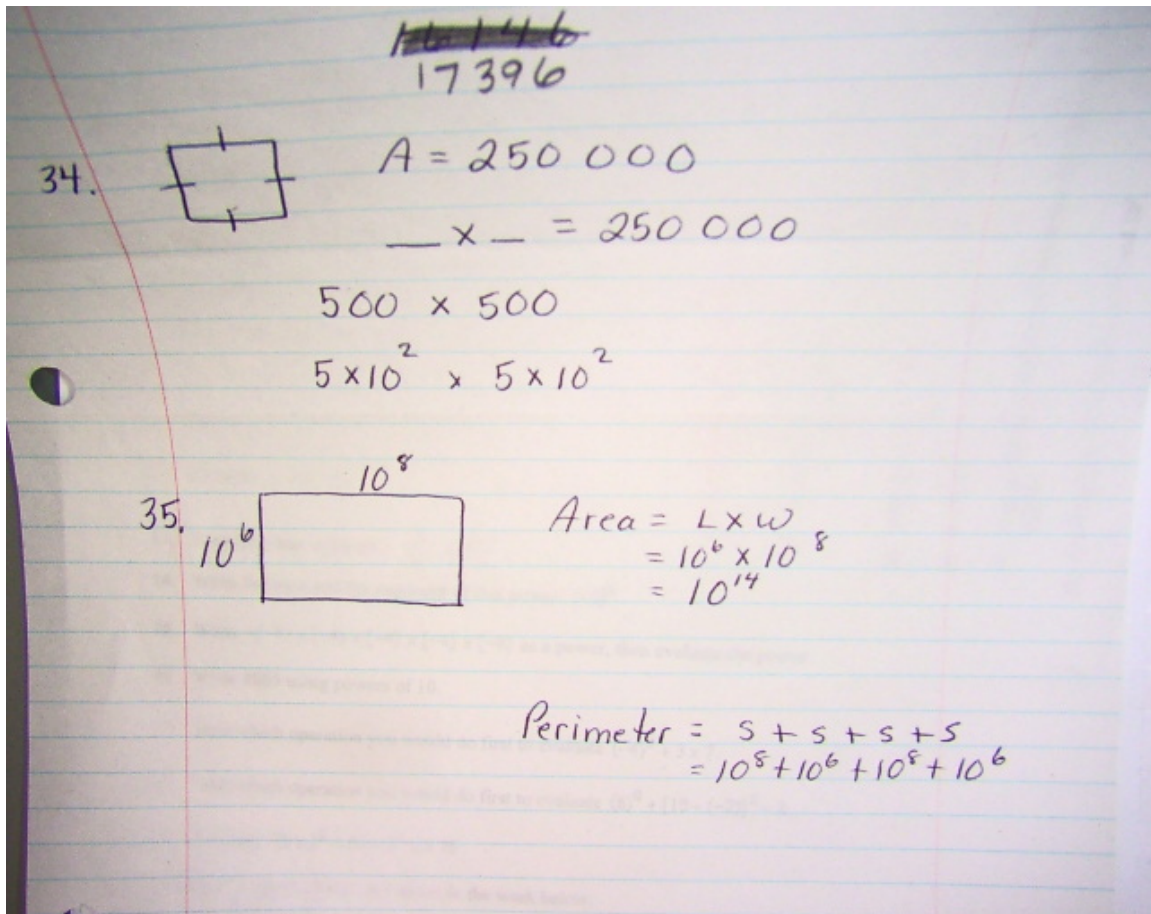 17396
34.
A = 250 000
__ x __ = 250 000
500 x 500
5 x 10² x 5 x 10²
35.
10⁸
10⁶
Area = L x W
= 10⁶ x 10⁸
= 10¹⁴
Perimeter = s + s + s + s
= 10⁸ + 10⁶ + 10⁸ + 10⁶